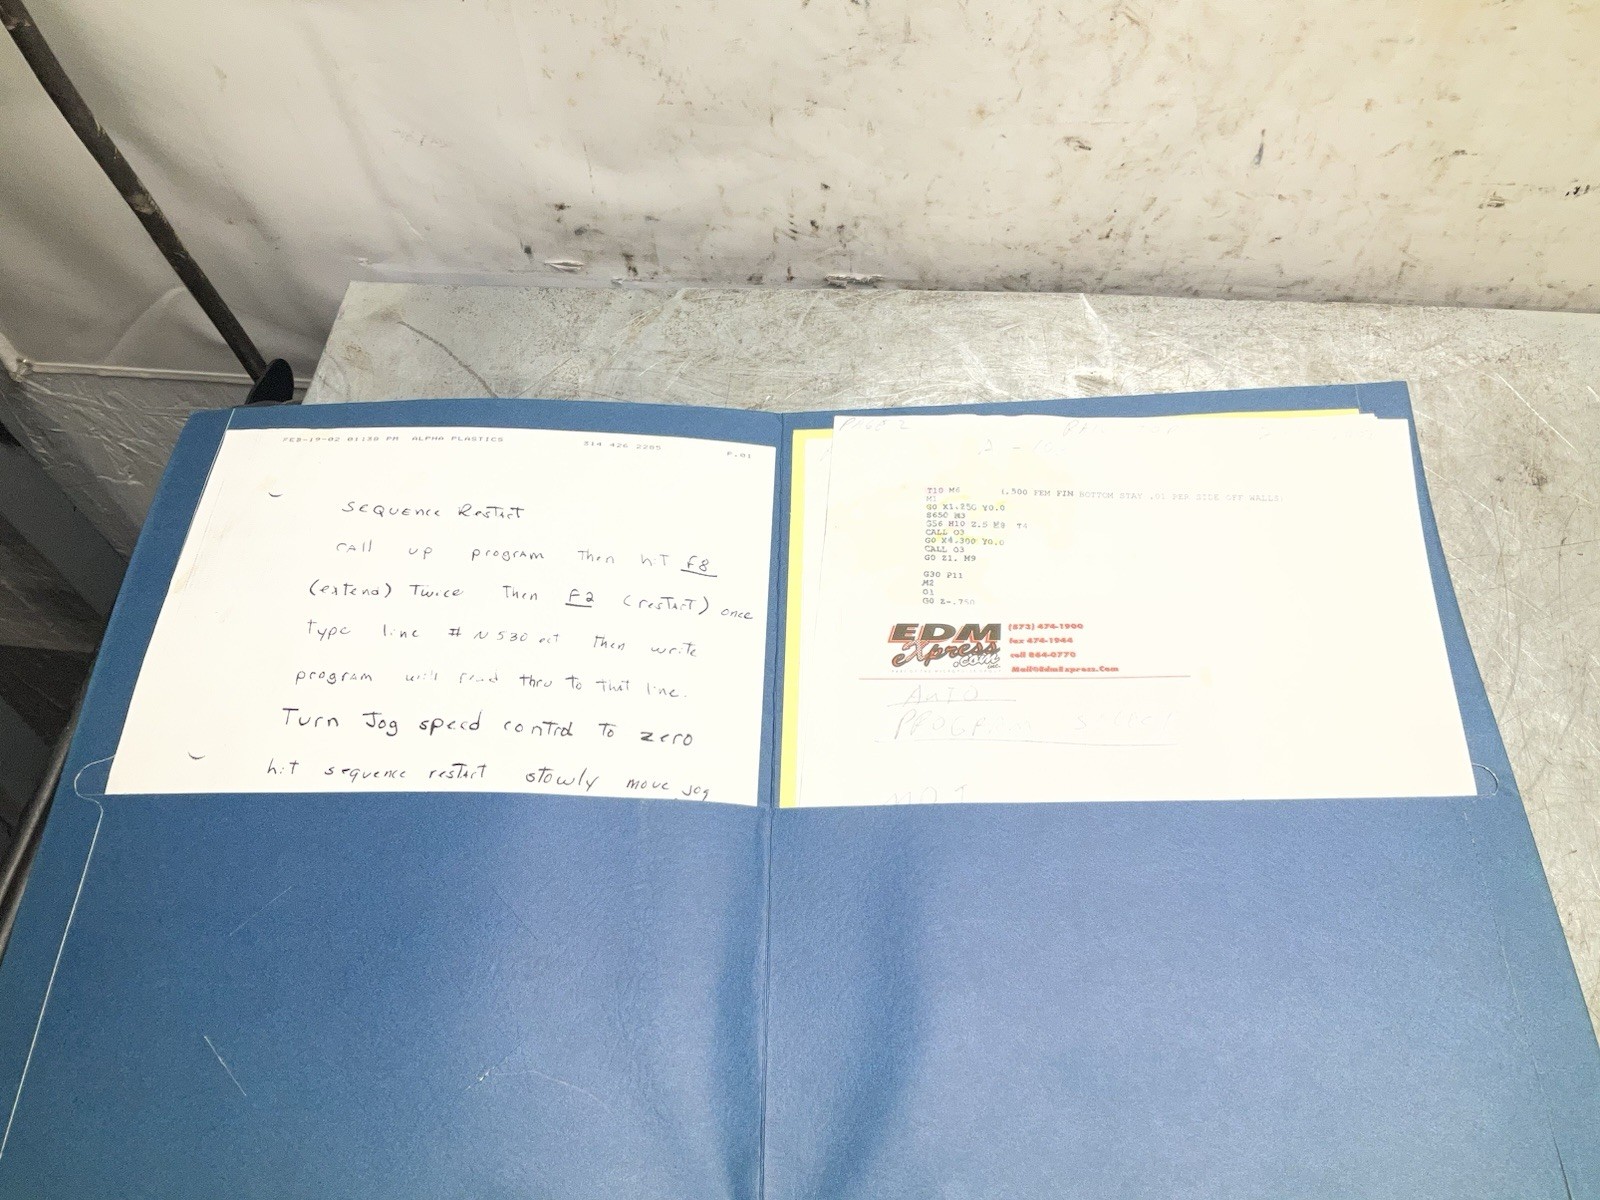 FEB-19-02 01:38 PM ALPHA PLASTICS 314 426 2205 P.01
SEQUENCE RESTART
CALL UP program Then hit F8
(extend) Twice Then F2 (restart) once
Type line # N530 ect Then write
program will read thru to that line.
Turn Jog speed control to zero
hit sequence restart slowly move jog
PAGE 2
T10 M6 (.500 FEM FIN BOTTOM STAY .01 PER SIDE OFF WALLS)
M1
G0 X1.250 Y0.0
S650 M3
G56 H10 Z.5 M8 T4
CALL O3
G0 X4.300 Y0.0
CALL O3
G0 Z1. M9
G30 P11
M2
O1
G0 Z-.750
EDM Xpress .com inc.
(573) 474-1900
fax 474-1944
cell 864-0770
Mail@EdmExpress.Com
AUTO
PROGRAM